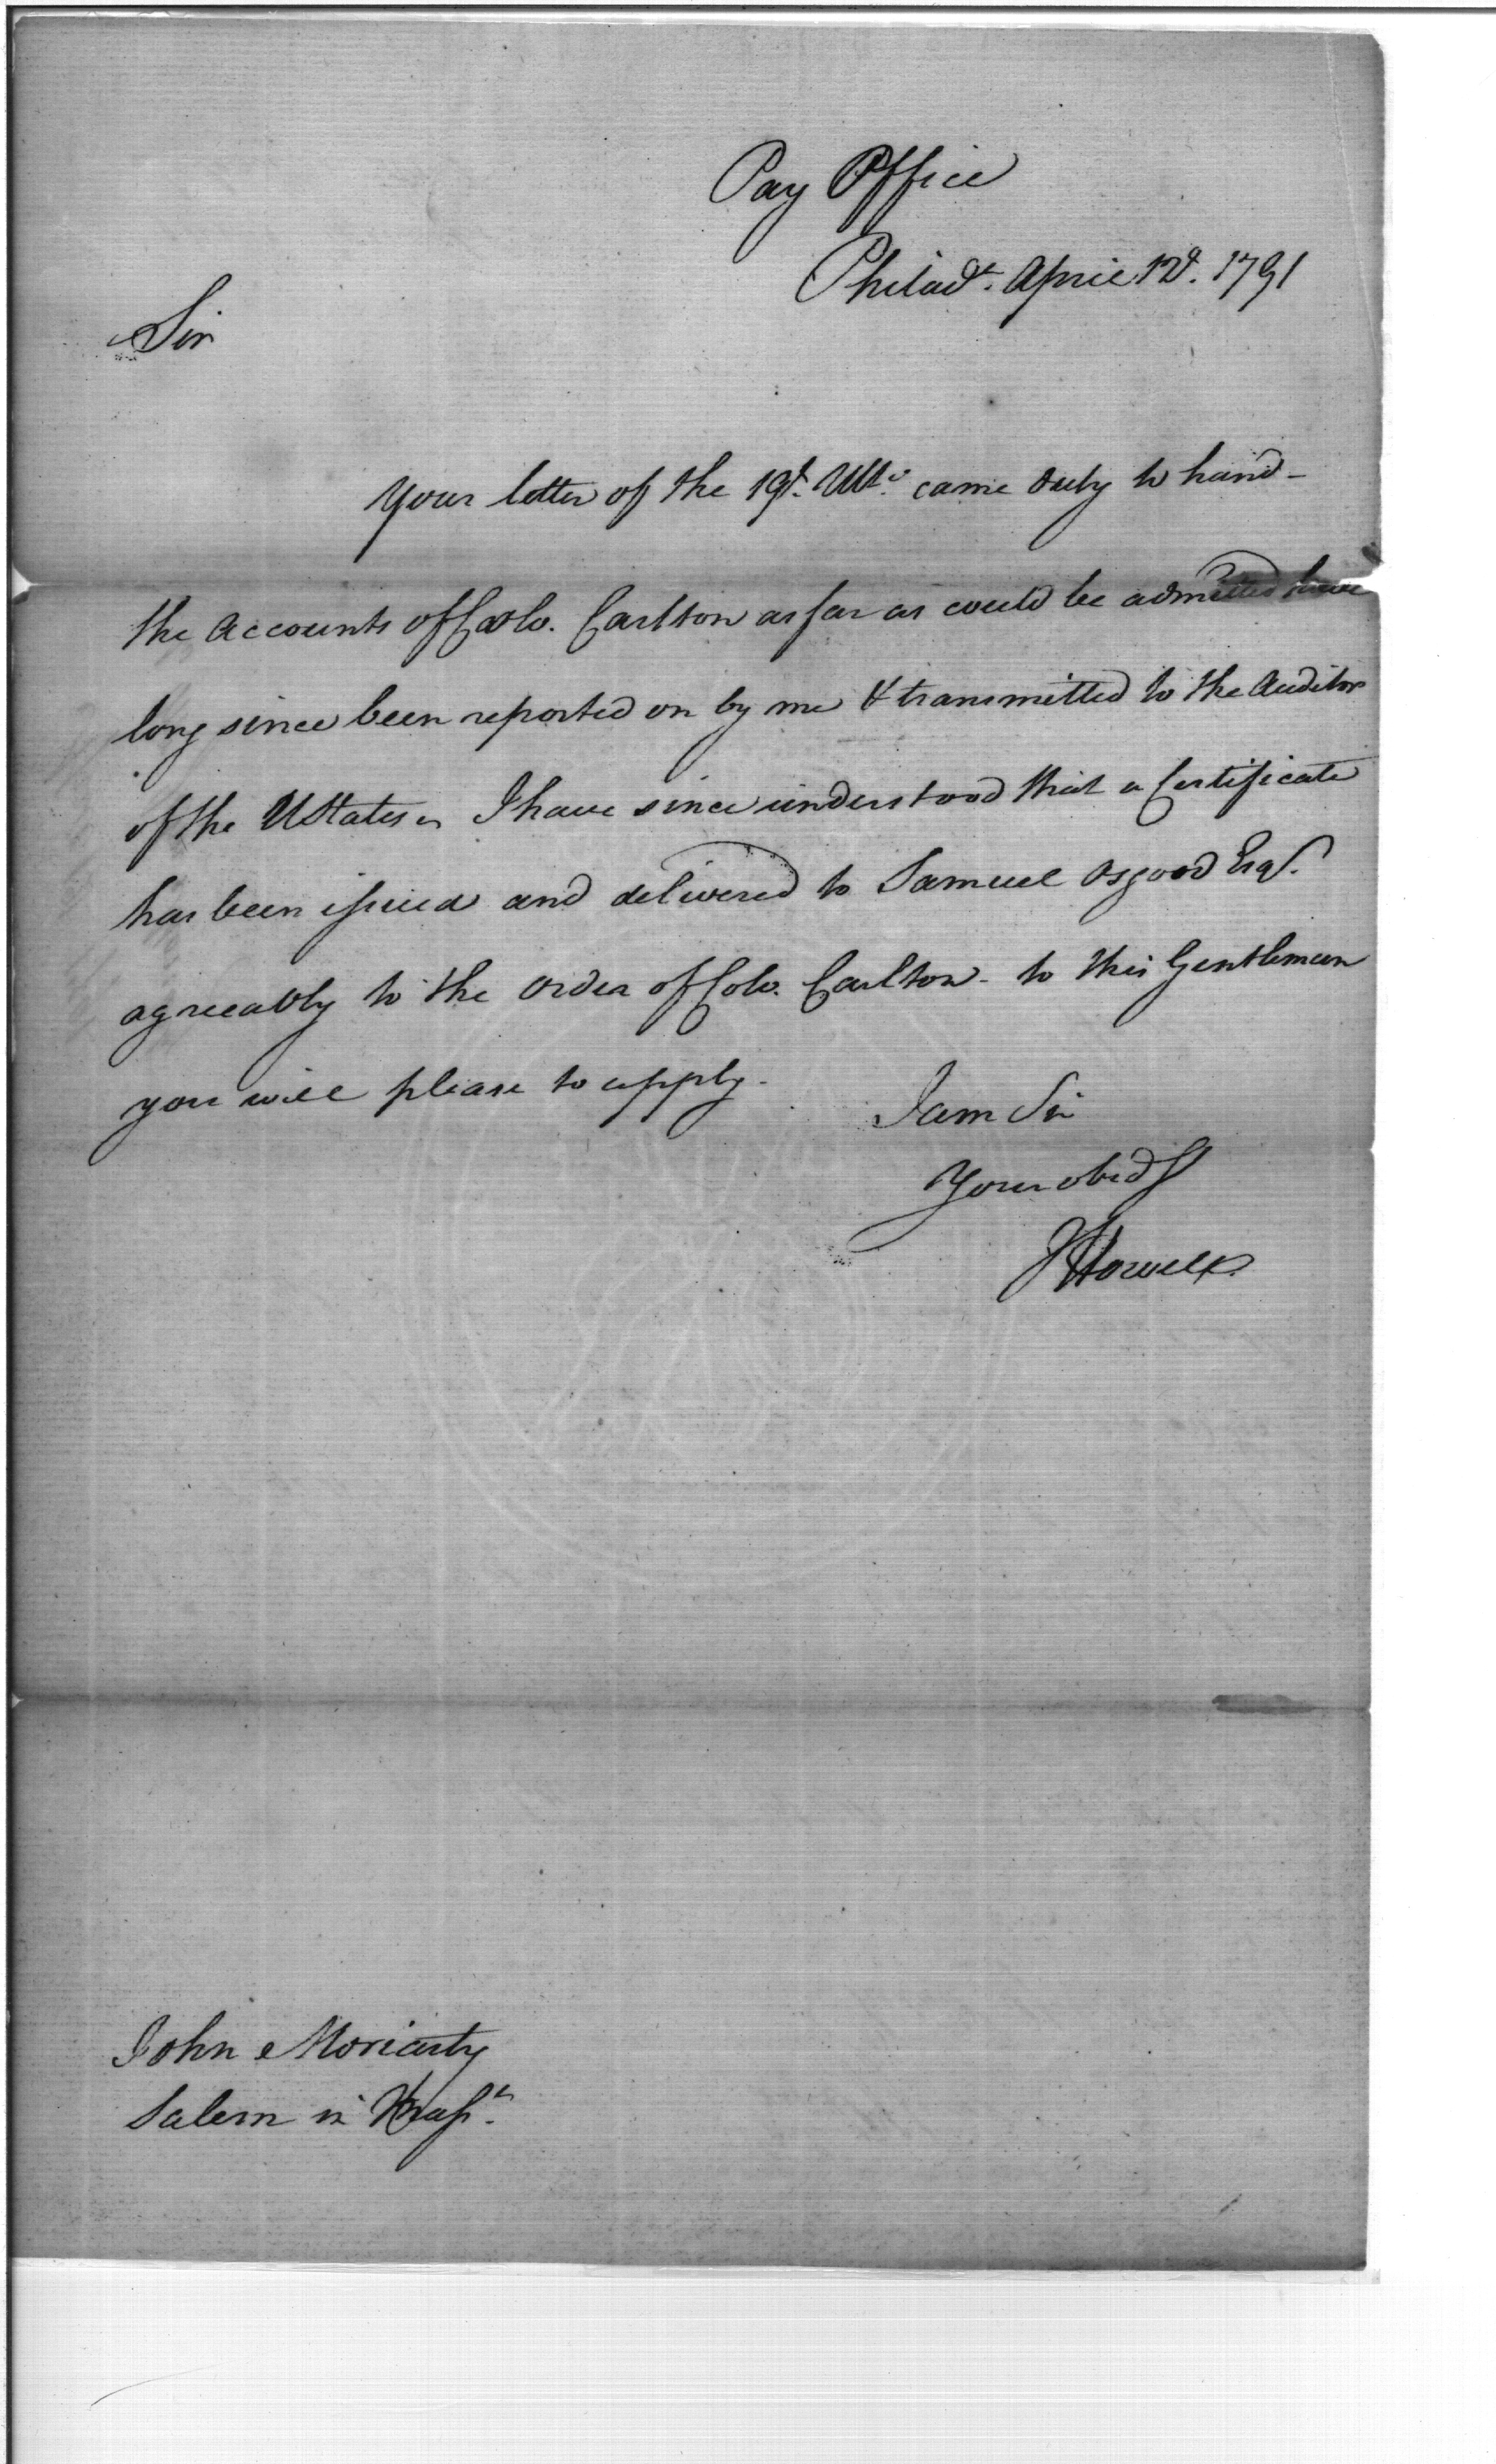 Pay Office
Philada. April 12d. 1791
Sir
Your letter of the 19th. Ulto. came duly to hand-
the Accounts of Colo. Carlton as far as could be admitted have
long since been reported on by me & transmitted to the Auditor
of the UStates I have since understood that a Certificate
has been issued and delivered to Samuel Osgood Esqr.
agreeably to the Order of Colo. Carlton - to this Gentleman
you will please to apply.
I am Sir
Your obedSt
JHowell
John Moriarty
Salem in Massts.